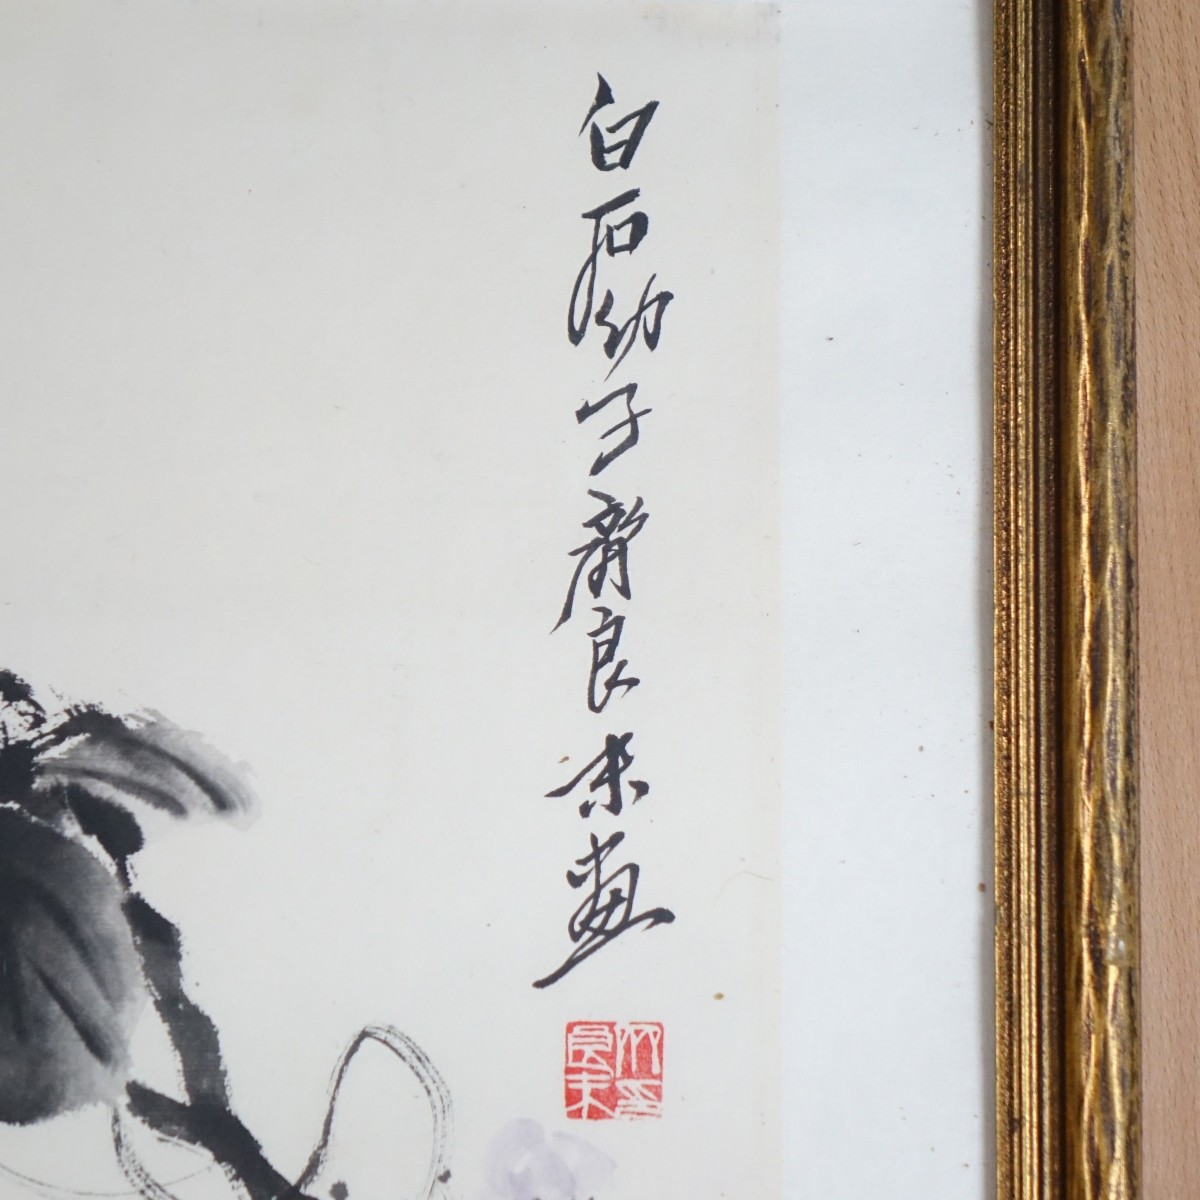 白石幼子齊良末畫
齊良末印